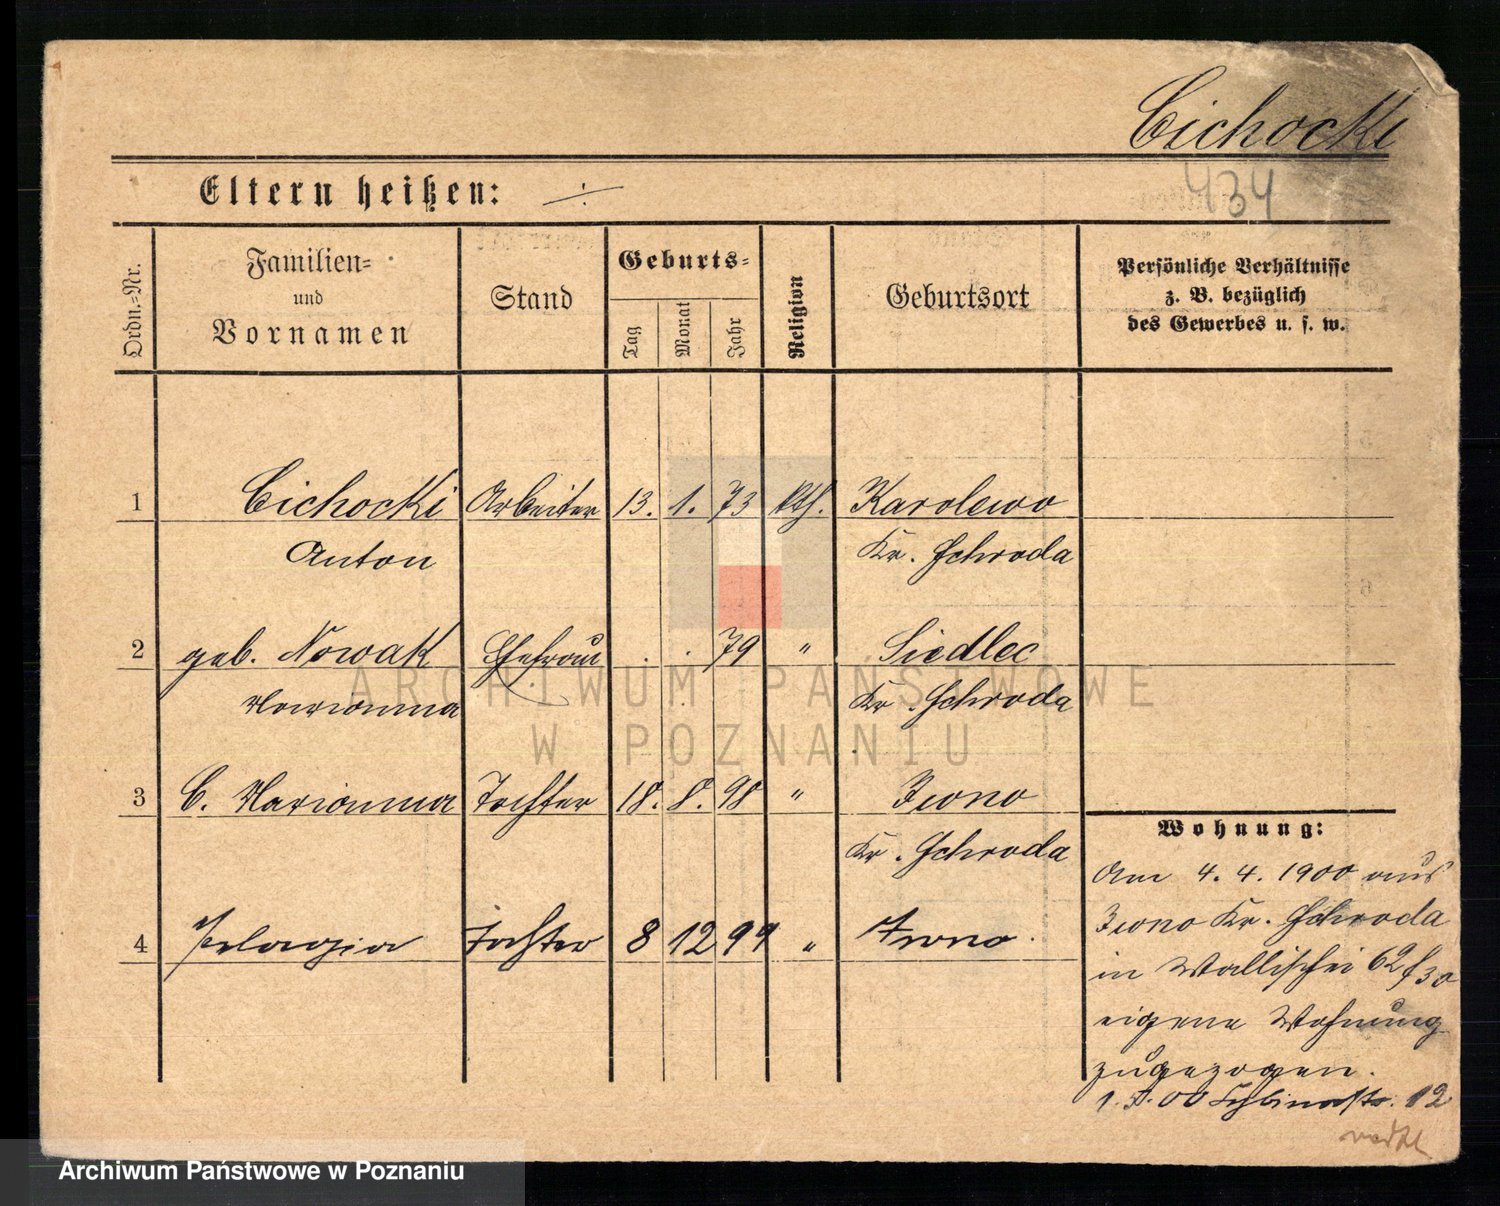 Cichocki
434
Eltern heißen: ÷
Ordn.=Nr.
Familien=
und
Vornamen
Stand
Geburts=
Tag
Monat
Jahr
Religion
Geburtsort
Persönliche Verhältnisse
z. B. bezüglich
des Gewerbes u. s. w.
1 Cichocki Arbeiter 13. 1. 73 kth. Karolewo
Anton Kr. Schroda
2 geb. Nowak Ehefrau . . 79 " Siedlec
Marianna Kr. Schroda
3 C. Marianna Tochter 18. 8. 98 " Iwno
Kr. Schroda
4 Pelagia Tochter 8 12 99 " Iwno
Wohnung:
Am 4. 4. 1900 aus
Iwno Kr. Schroda
in Wallischei 62/
eigene Wohnung
zugezogen.
00 12
ARCHIWUM PAŃSTWOWE
W POZNANIU
Archiwum Państwowe w Poznaniu